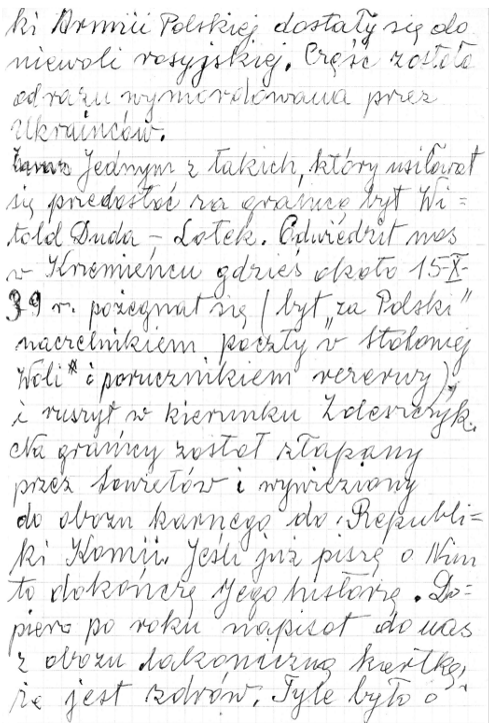 ki Armii Polskiej dostały się do
niewoli rosyjskiej. Część została
odrazu wymordowana przez
Ukraińców.
Jednym z takich, który usiłował
się przedostać za granicę był Wi=
told Duda - Lotek. Odwiedził nas
w Krzemieńcu gdzieś około 15-X-
39 r. pożegnał się (był "za Polski"
naczelnikiem poczty w Stalowej
Woli* i porucznikiem rezerwy),
i ruszył w kierunku
Na granicy został złapany
przez Sowietów i wywieziony
do obozu karnego do Republi=
ki Komii. Jeśli już piszę o Nim
to dokończę Jego historię. Do=
piero po roku napisał do nas
z obozu lakoniczną kartkę,
że jest zdrów. Tyle było o